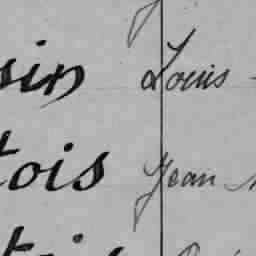 sin Louis
tois Jean